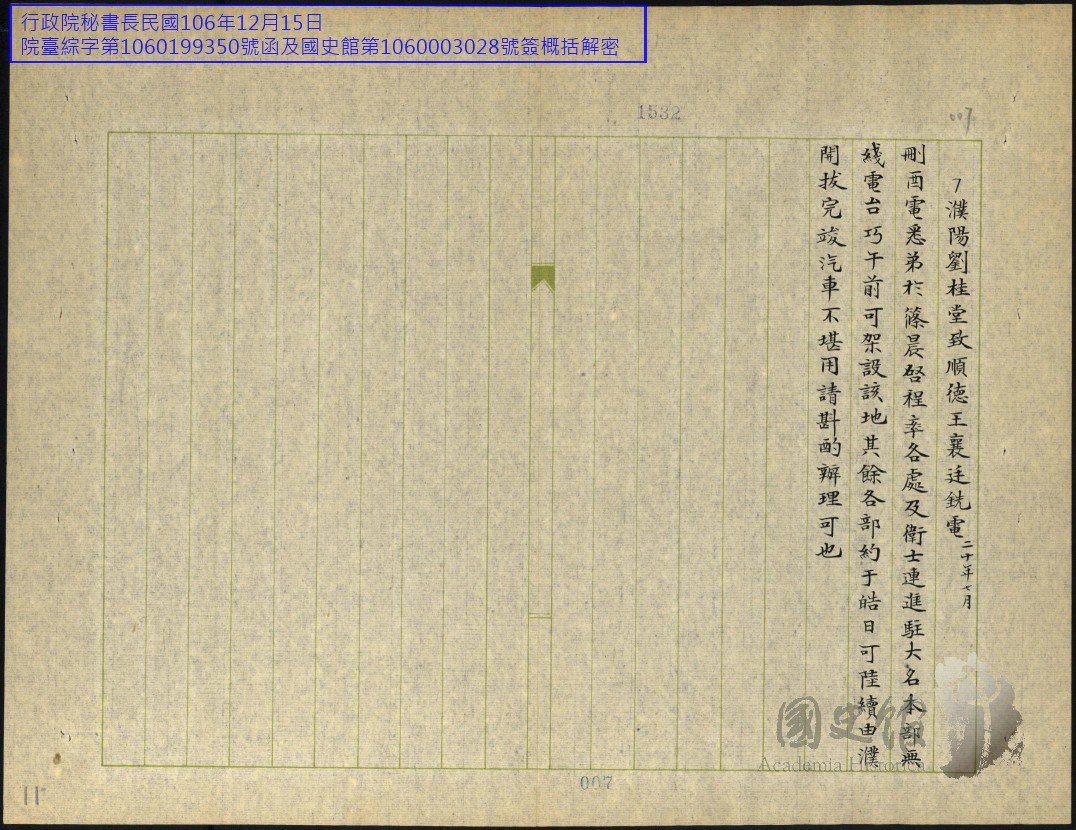 行政院秘書長民國106年12月15日
院臺綜字第1060199350號函及國史館第1060003028號簽概括解密
1532
007
7濮陽劉桂堂致順德王襄廷銑電二十年七月
刪酉電悉弟於篠晨啓程率各處及衛士連進駐大名本部無
綫電台巧午前可架設該地其餘各部約于皓日可陸續由濮
開拔完竣汽車不堪用請斟酌辦理可也
國史館
Academia Historica
007
11